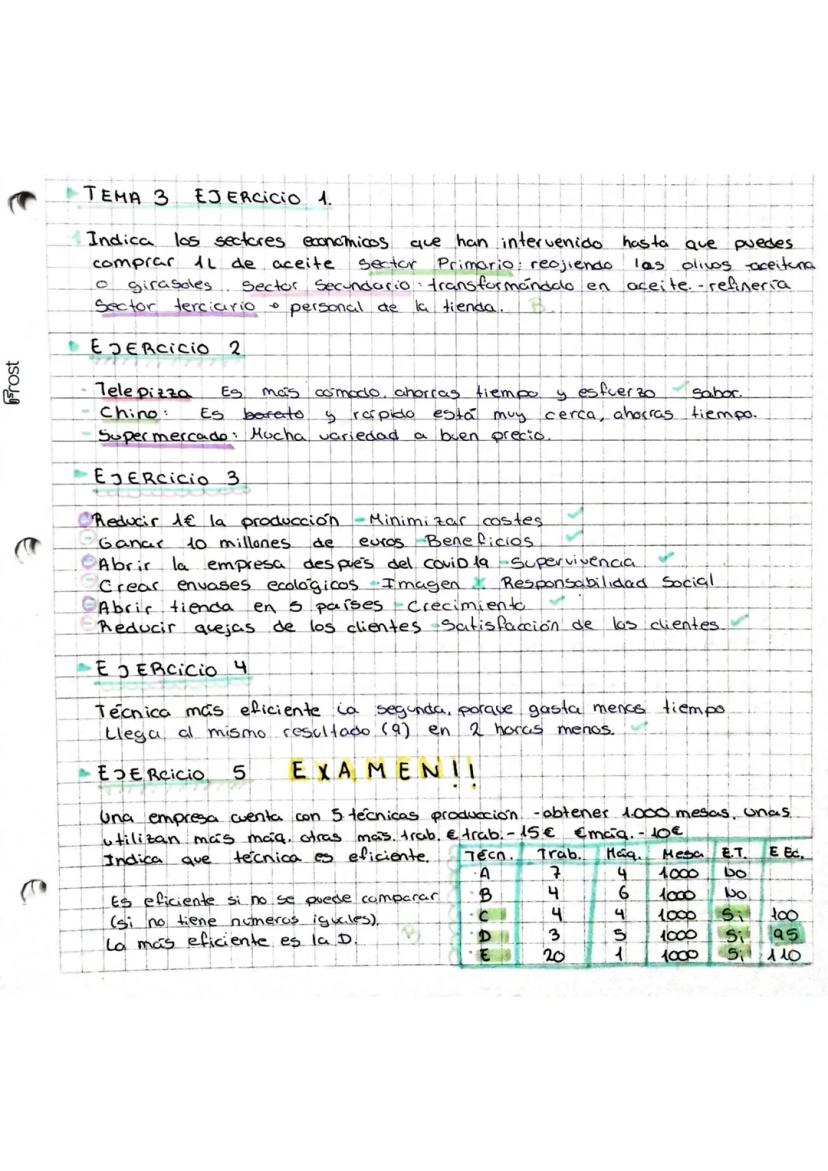 TEMA 3 EJERCICIO 1.
Indica los sectores económicos que han intervenido hasta que puedes
comprar 1L de aceite Sector Primario: reojiendo las olivas aceituna
o girasoles. Sector Secundario: transformándolo en aceite.-refinería
Sector terciario → personal de la tienda. B
EJERCICIO 2
Frost
- Telepizza Es más cómodo, ahorras tiempo y esfuerzo ✓ sabor.
- Chino: Es barato y rápido está muy cerca, ahorras tiempo.
- Supermercado: Mucha variedad a buen precio.
EJERCICIO 3
Reducir 1€ la producción - Minimizar costes ✓
Ganar 10 millones de euros - Beneficios ✓
Abrir la empresa después del covid 19 - Supervivencia ✓
Crear envases ecológicos - Imagen x Responsabilidad Social
Abrir tienda en 5 países - Crecimiento ✓
Reducir quejas de los clientes - Satisfacción de los clientes ✓
EJERCICIO 4
Técnica más eficiente la segunda, porque gasta menos tiempo
Llega al mismo resultado (9) en 2 horas menos. ✓
EJERCICIO 5 EXAMEN!!
Una empresa cuenta con 5 técnicas producción - obtener 1.000 mesas, unas
utilizan más maq. otras más. trab. € trab.- 15€ €maq.- 10€
Indica que técnica es eficiente.
Es eficiente si no se puede comparar
(si no tiene números iguales).
La más eficiente es la D.
Técn. Trab. Máq. Mesa E.T. E Ec.
A 7 4 1000 No
B 4 6 1000 No
C 4 4 1000 Si 100
D 3 5 1000 Si 95
E 20 1 1000 Si 110